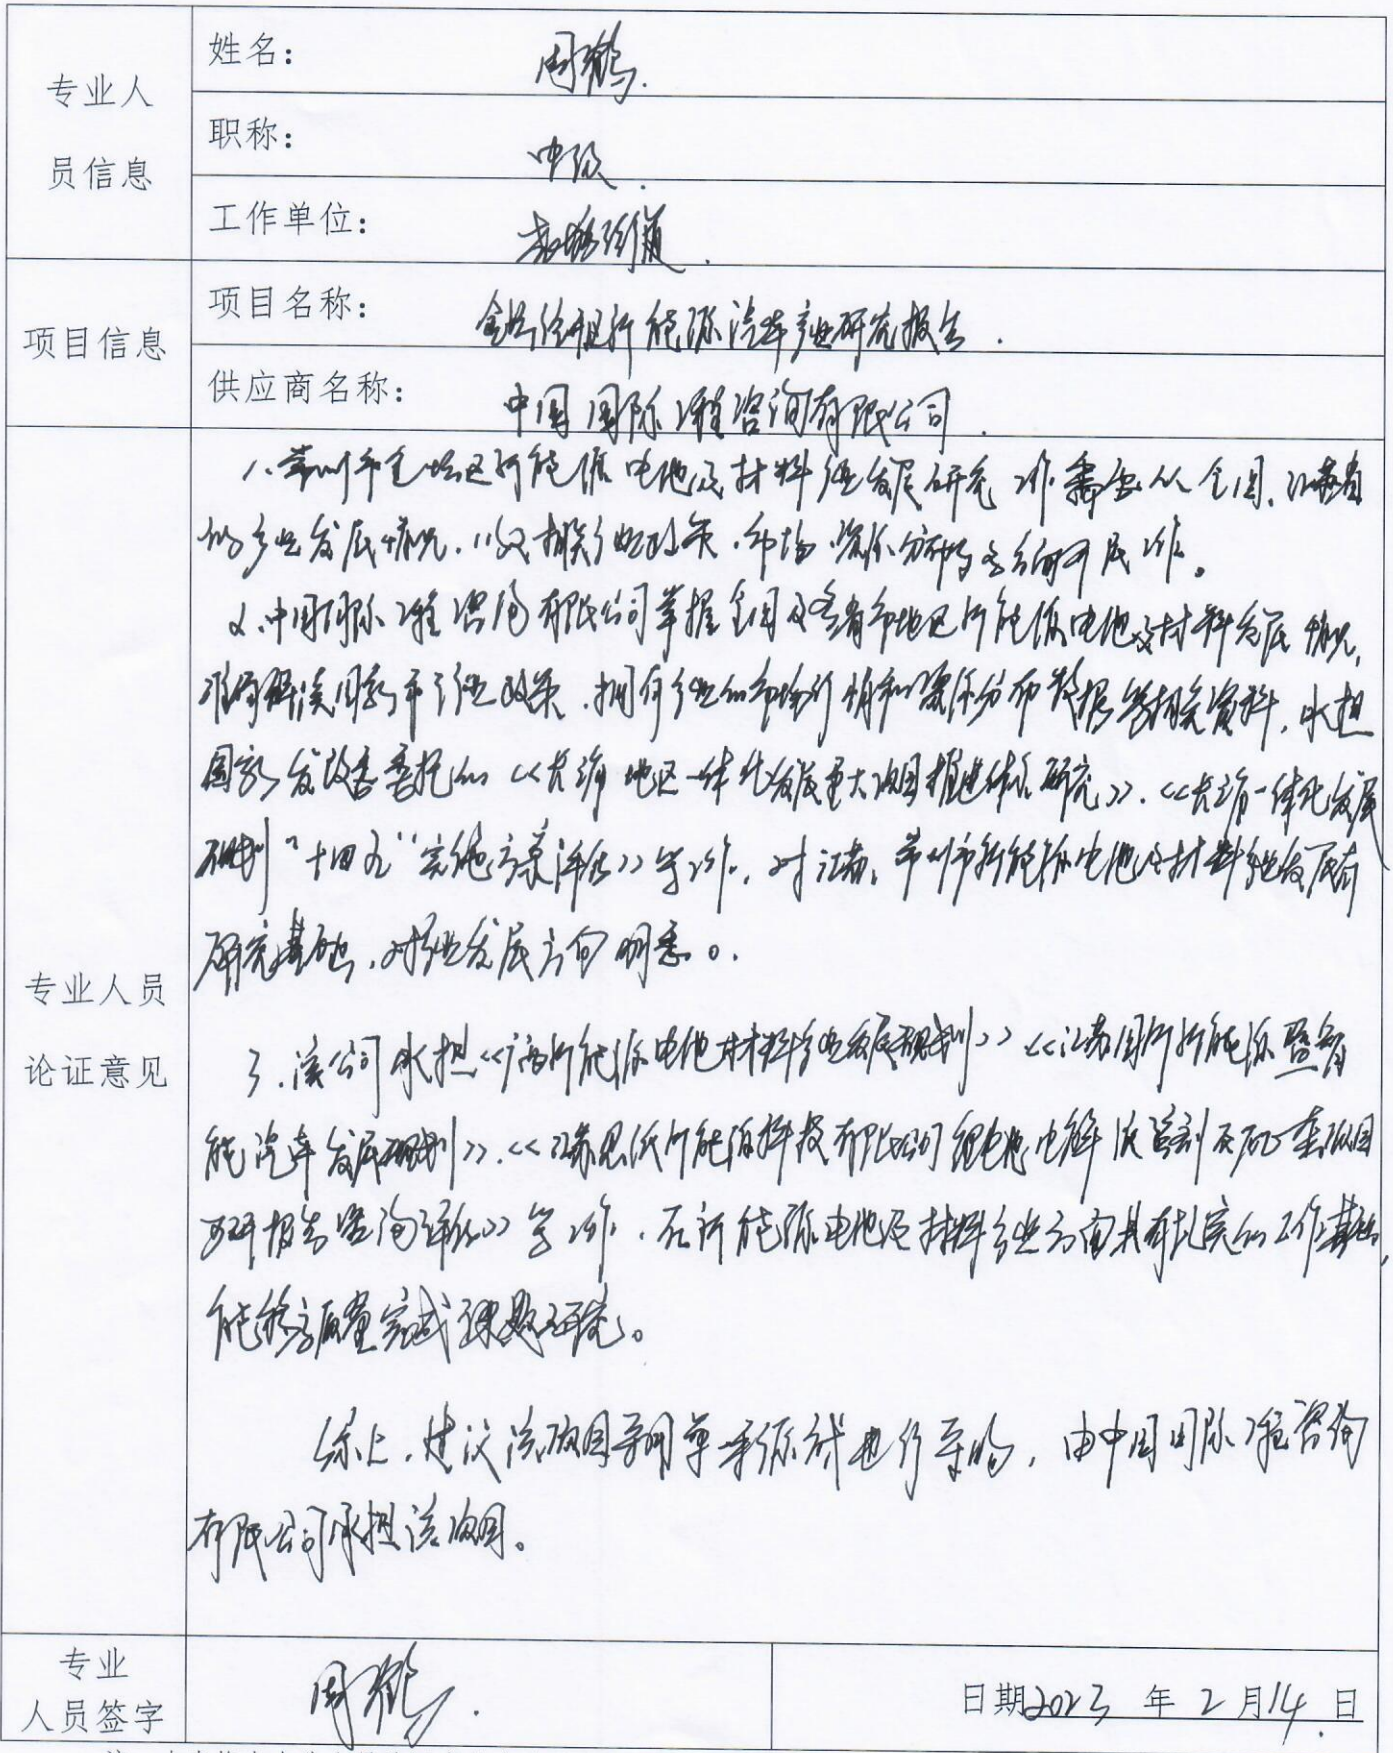 专业人员信息
姓名： 周鹤.
职称： 中级.
工作单位： 街道.
项目信息
项目名称： 金坛 新能源汽车产业研究报告.
供应商名称： 中国国际工程咨询有限公司.
专业人员论证意见
1、常州市金坛区新能源电池及材料产业发展研究工作需要从全国、江苏省
的产业发展情况、以及相关产业政策、市场、资源分布等方面开展工作。
2、中国国际工程咨询有限公司掌握全国及各省市地区新能源电池及材料发展情况,
准确解读国家和行业政策、拥有行业的市场行情和资源分布数据等相关资料,承担
国家发改委委托的《长三角地区一体化发展重大项目推进体系研究》.《长三角一体化发展
规划“十四五”实施方案评估》等工作.对江苏、常州市新能源电池及材料产业发展有
研究基础,对产业发展方向明悉。
3、该公司承担《 新能源电池材料产业发展规划》《江苏 新能源暨智
能汽车发展规划》.《江苏思派新能源科技有限公司锂电池电解液溶剂及 项目
可研报告咨询评估》等工作.在新能源电池及材料产业方面具有扎实的工作基础,
能够高质量完成课题研究。
综上,建议该项目采用单一来源方式进行采购,由中国国际工程咨询
有限公司承担该项目。
专业
人员签字 周鹤.
日期2023 年 2 月14.日